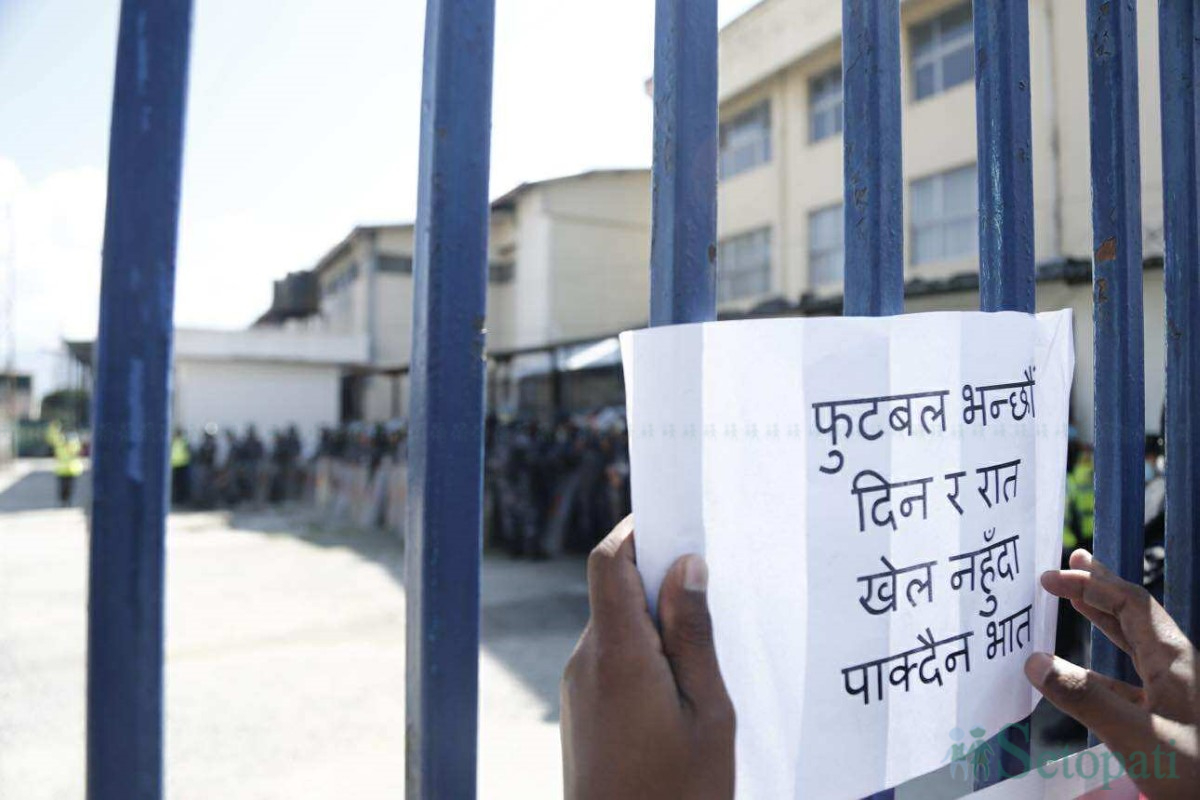 फुटबल भन्छौं
दिन र रात
खेल नहुँदा
पाक्दैन भात
Setopati